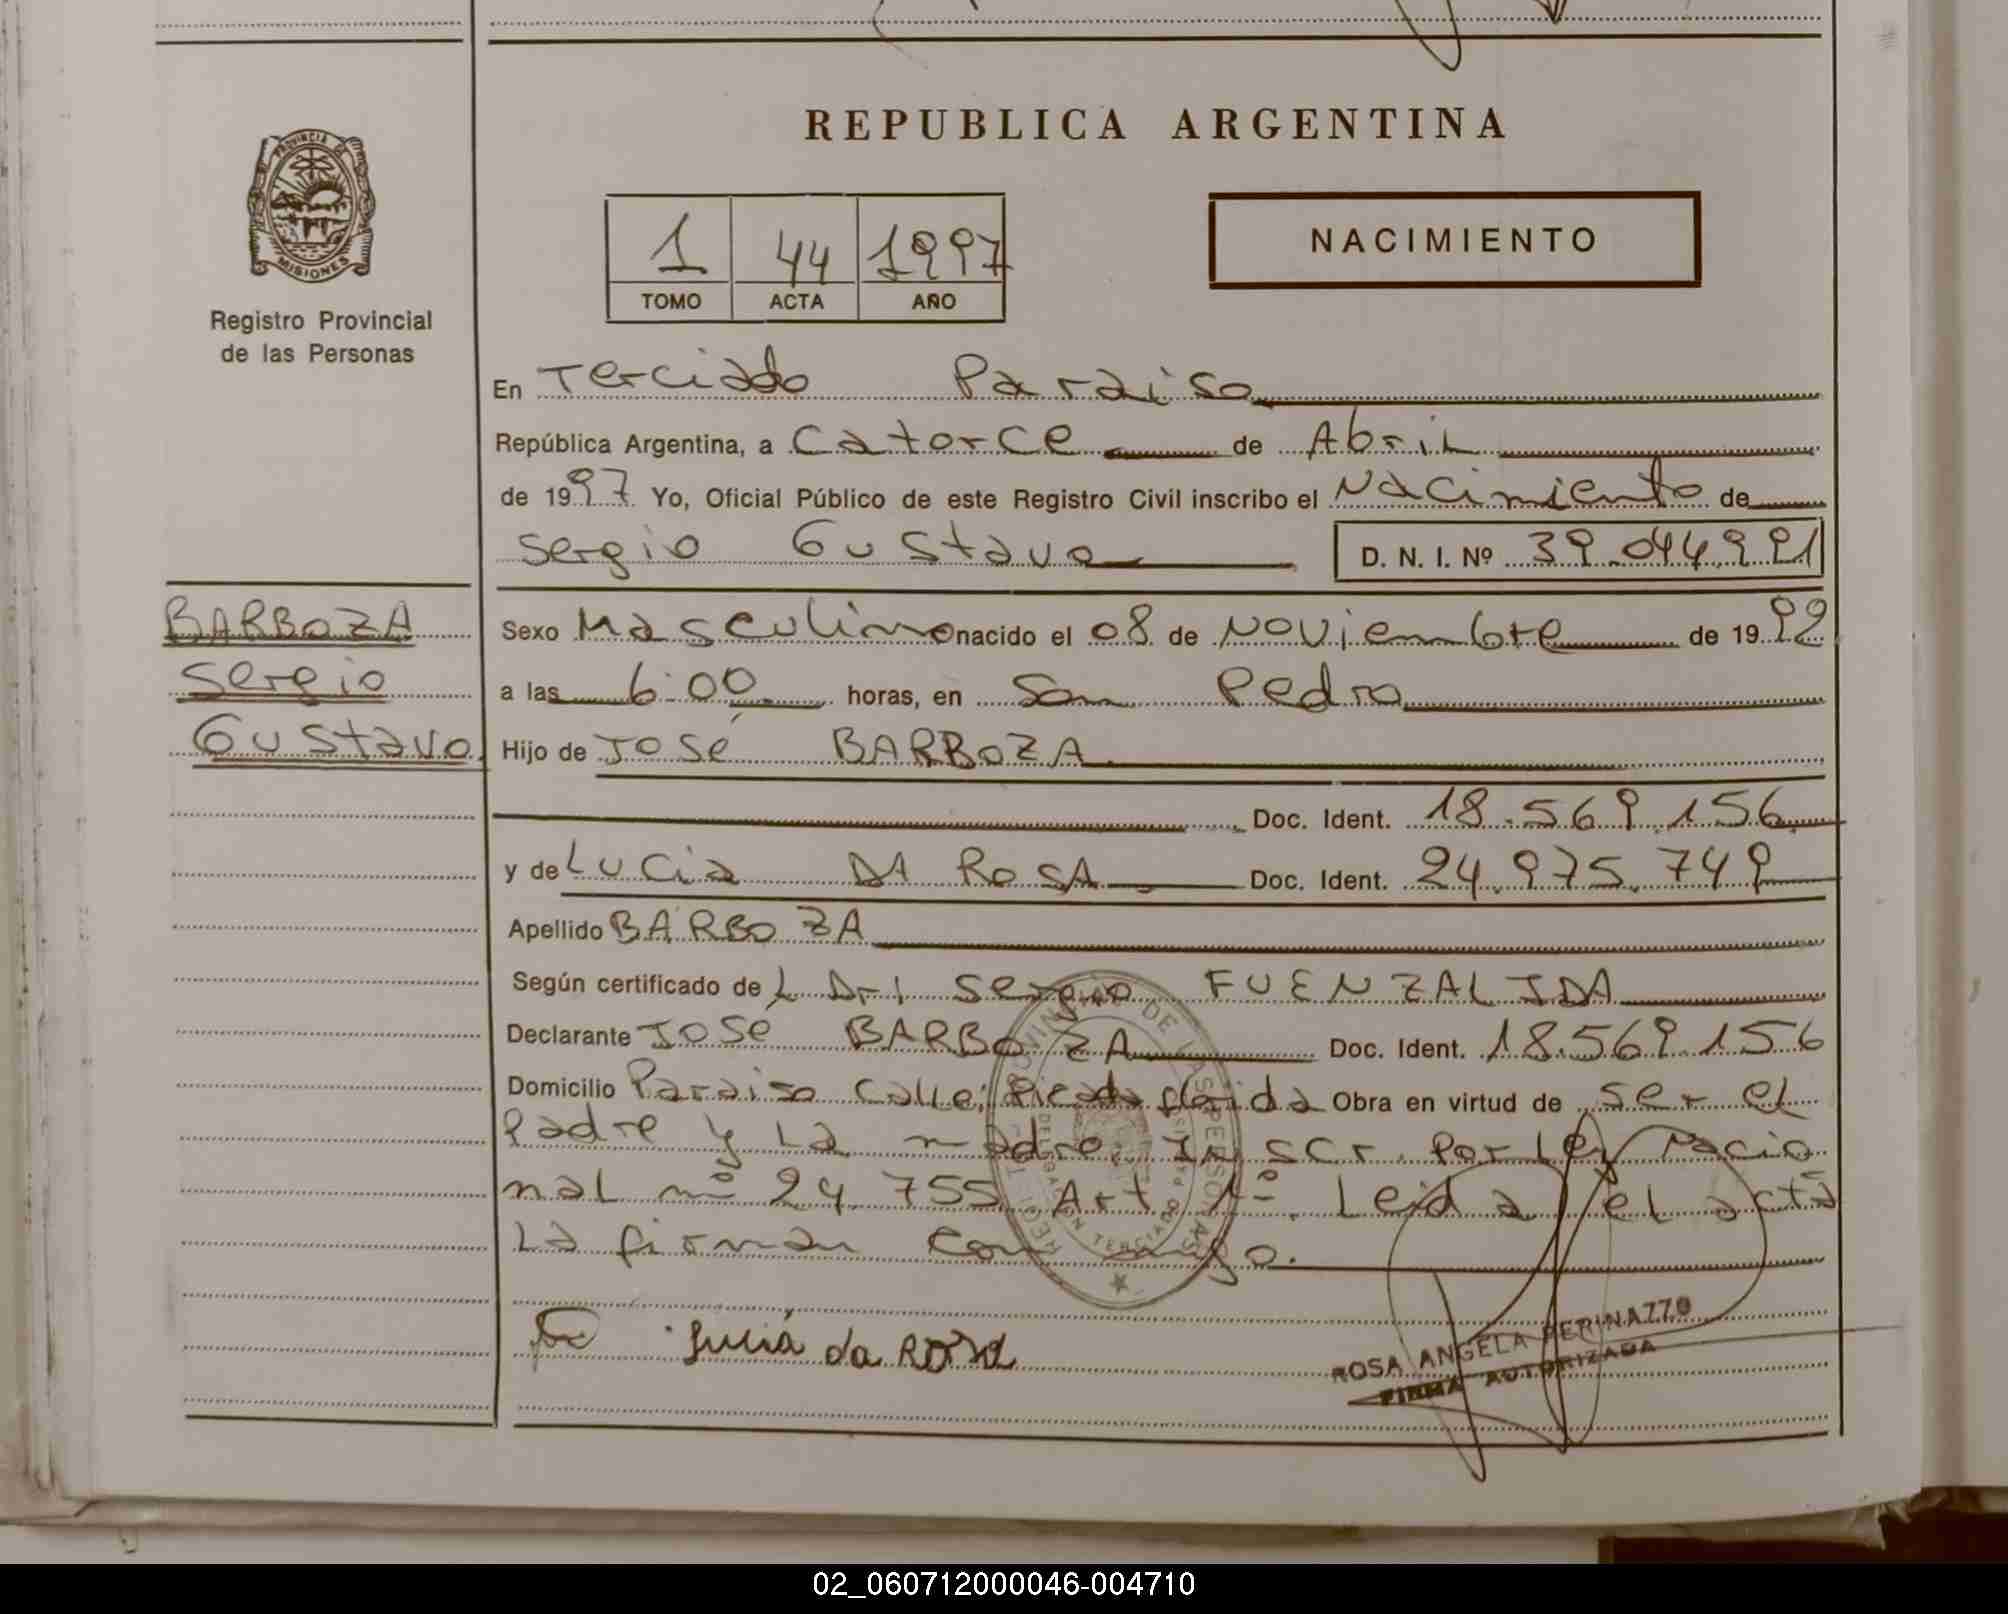 REPUBLICA ARGENTINA
PROVINCIA DE
MISIONES
Registro Provincial
de las Personas
1 44 1997
TOMO ACTA AÑO
NACIMIENTO
En Terciado Paraiso
República Argentina, a Catorce de Abril
de 1997 Yo, Oficial Público de este Registro Civil inscribo el Nacimiento de
Sergio Gustavo D. N. I. Nº 39.044.991
BARBOZA
Sergio
Gustavo
Sexo Masculino nacido el 08 de Noviembre de 1992
a las 6:00 horas, en San Pedro
Hijo de José BARBOZA
Doc. Ident. 18.569.156
y de Lucia DA ROSA Doc. Ident. 24.975.749
Apellido BARBOZA
Según certificado de L Dr: Sergio FUENZALIDA
Declarante José BARBOZA Doc. Ident. 18.569.156
Domicilio Paraiso Calle: Picada florida Obra en virtud de ser el
Padre y La madre Inscr. Por Ley Nacio
nal nº 24.755 Art 1º. Leida el acta
La firman conmigo.
Lucia da Rosa
ROSA ANGELA PERINAZZO
FIRMA AUTORIZADA
02_060712000046-004710